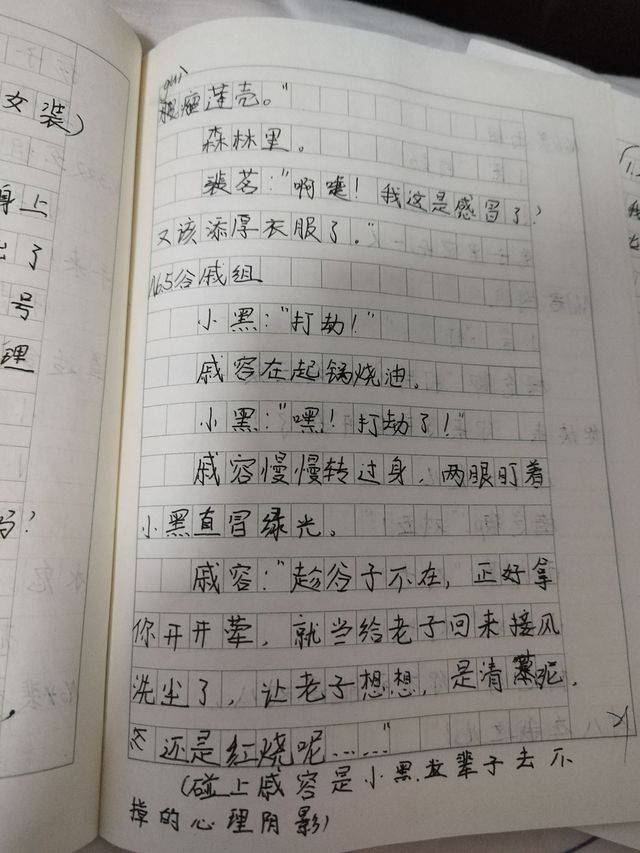 女装)
身上
了
号
理
?
gui
莲壳。"
森林里。
裴茗："啊嚏！我这是感冒了?
又该添厚衣服了。"
No.5谷戚组
小黑："打劫！"
戚容在起锅烧油。
小黑："嘿！打劫了！"
戚容慢慢转过身，两眼盯着
小黑直冒绿光。
戚容："趁谷子不在，正好拿
你开开荤，就当给老子回来接风
洗尘了，让老子想想，是清蒸呢，
还是红烧呢……"
(碰上戚容是小黑这辈子去不
掉的心理阴影)